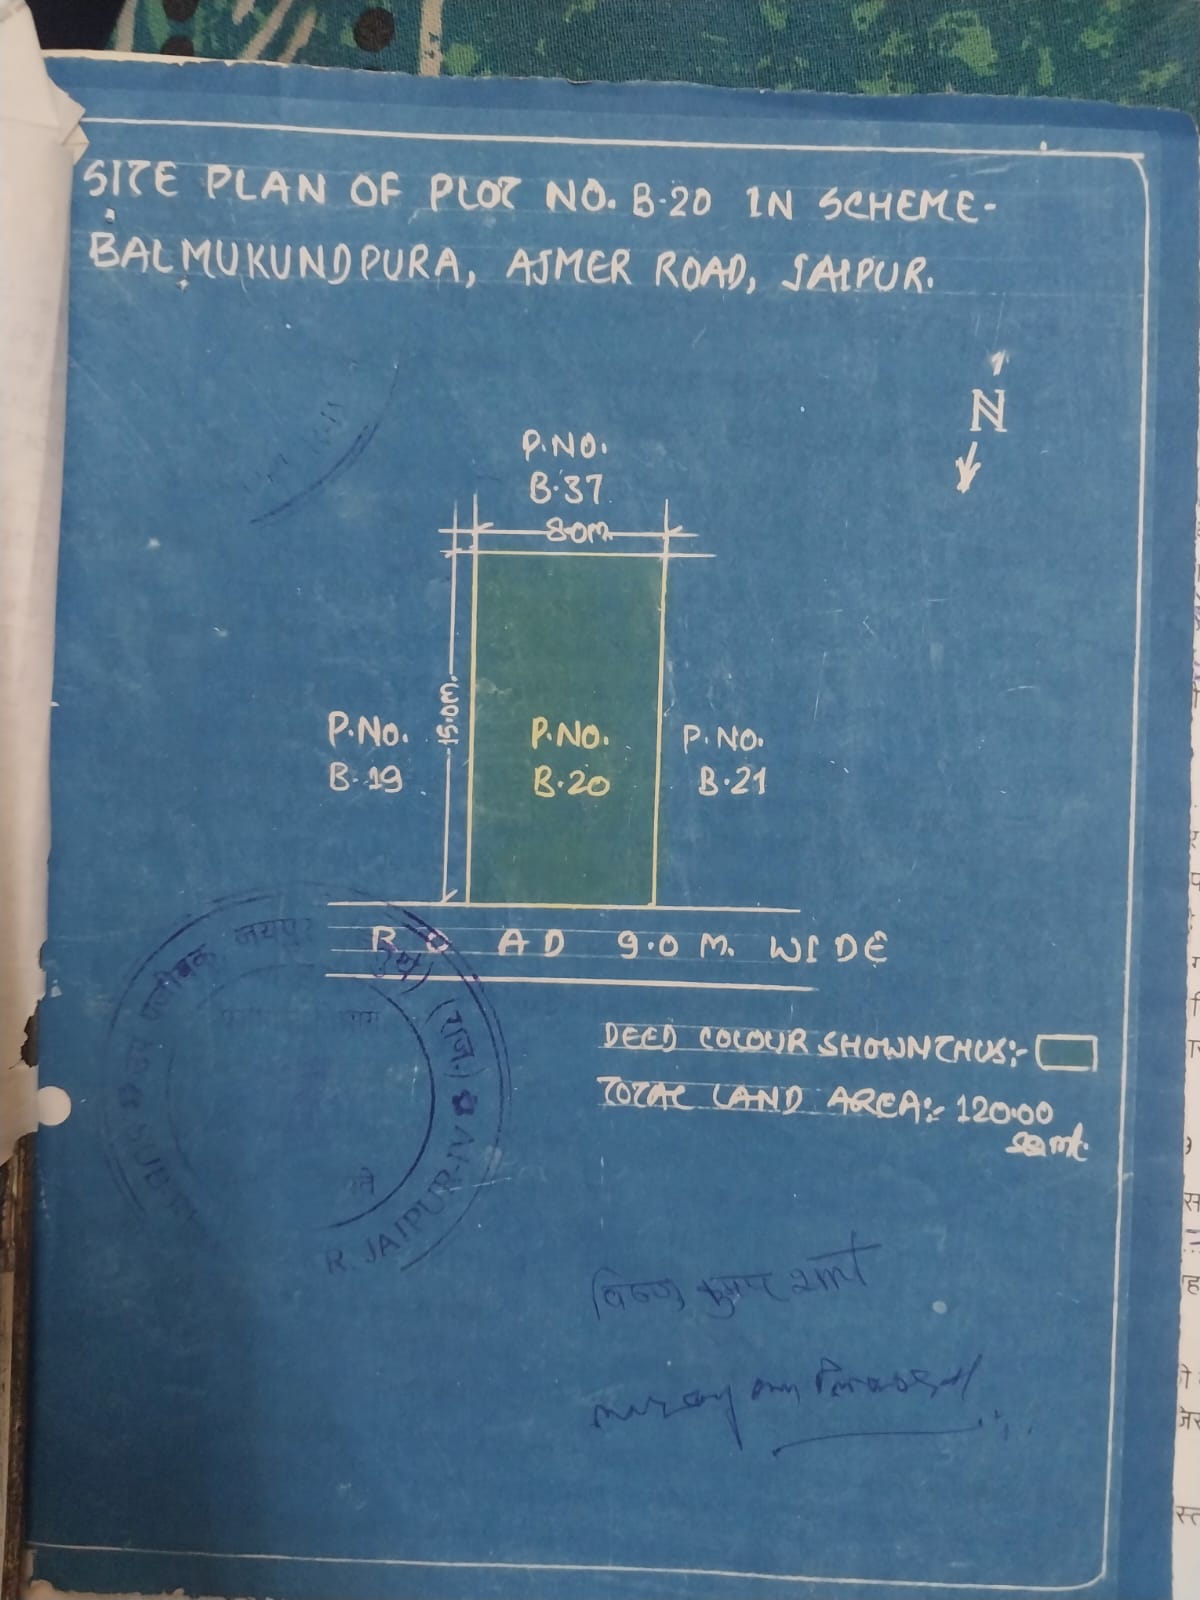 SITE PLAN OF PLOT NO. B-20 IN SCHEME-
BALMUKUNDPURA, AJMER ROAD, JAIPUR.
N
P.NO.
B-37
8.0m.
15.0m.
P.NO.
B-19
P.NO.
B-20
P.NO.
B-21
ROAD 9.0 M. WIDE
DEED COLOUR SHOWN THUS:-
TOTAL LAND AREA:- 120.00
sqmt.
उप पंजीयक जयपुर
(राज.)
SUB
R. JAIPUR-IV
कुमार शर्मा